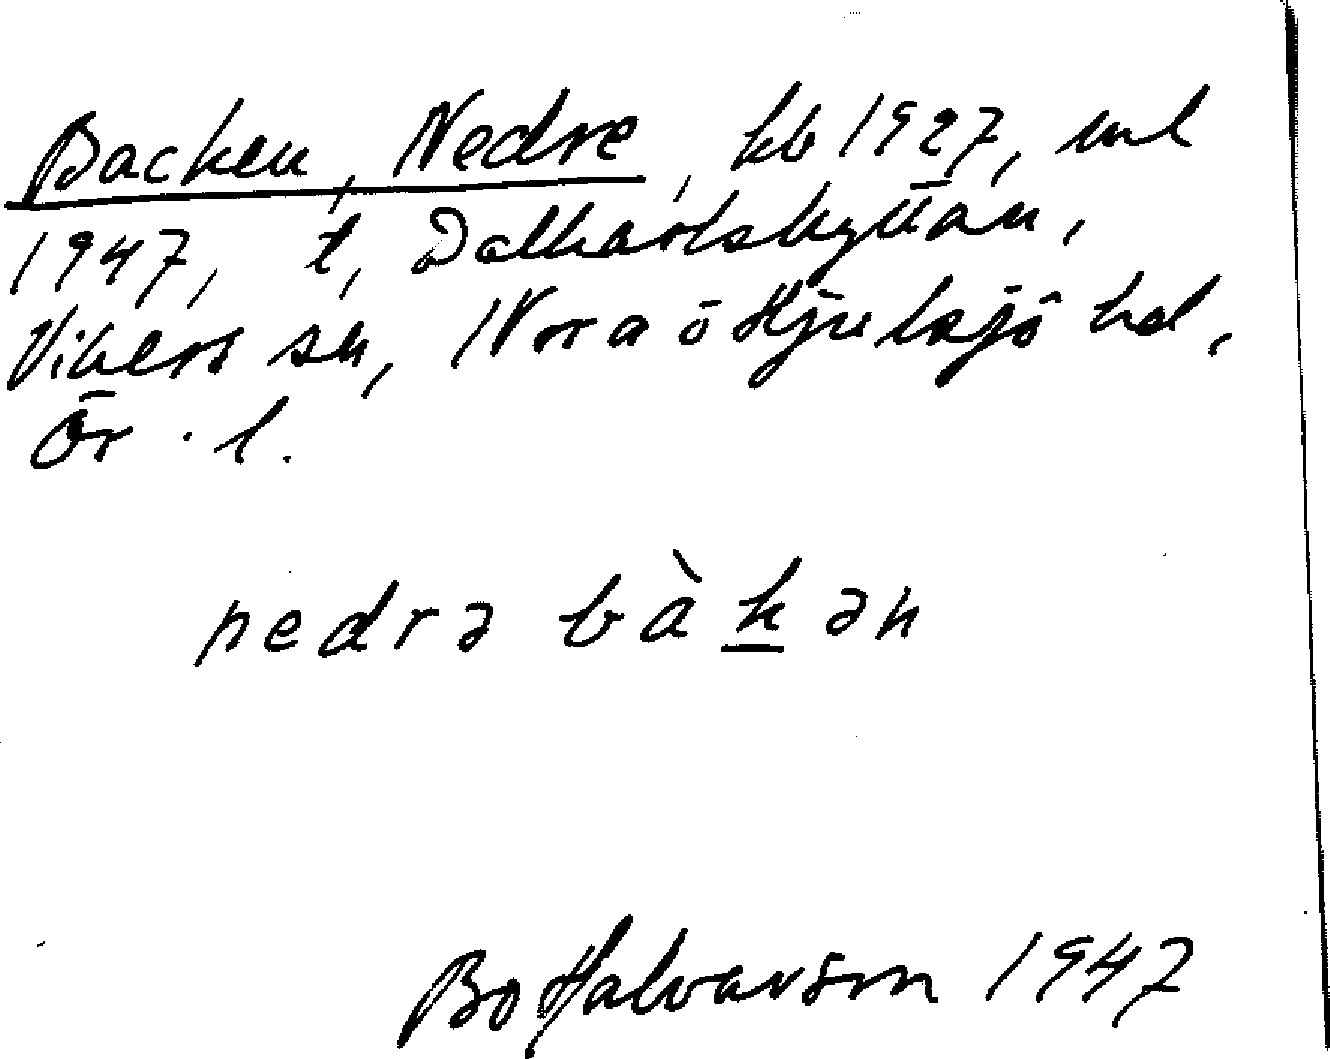 Backen, Nedre, kb 1927, ml
1947, t, Dalkarlshyttan,
Vikers sn, Nora ō Hjulsjö hd,
Ör. l.
nedrə bàkən
Bo Halvarson 1947